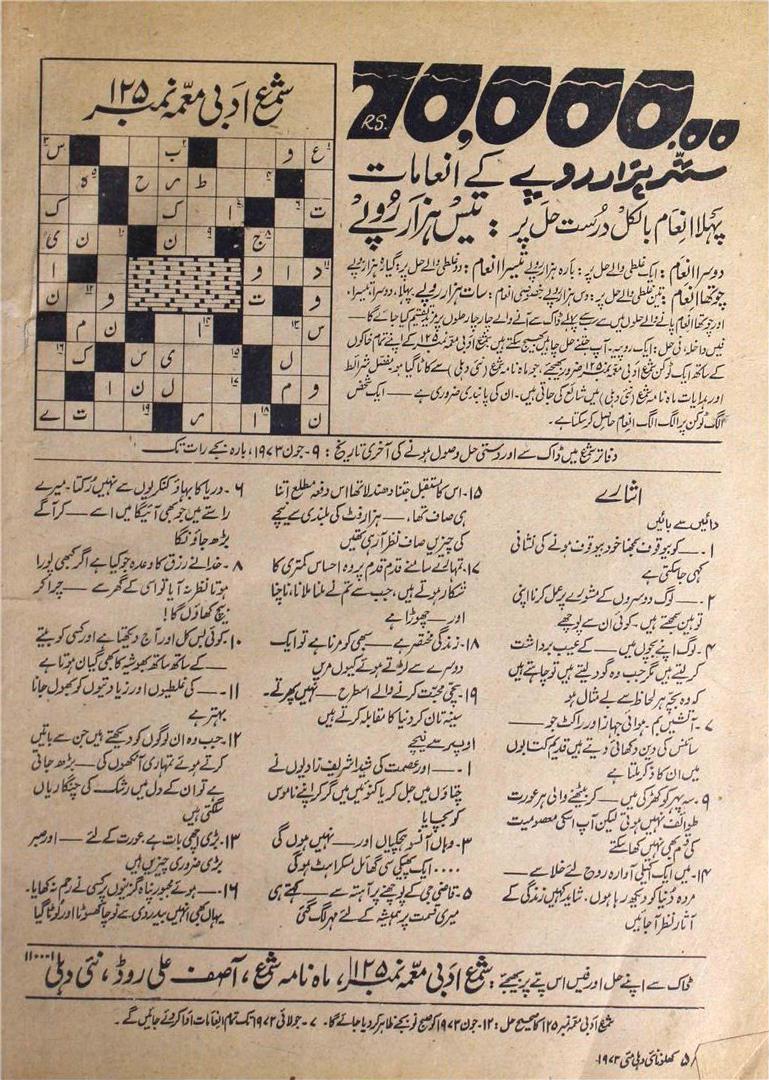 Rs. 70,000.00
ستّر ہزار روپے کے انعامات
پہلا انعام بالکل درست حل پر : تیس ہزار روپے
دوسرا انعام : ایک غلطی والے حل پر : بارہ ہزار روپے تیسرا انعام : دو غلطی والے حل پر : گیارہ ہزار روپے
چوتھا انعام : تین غلطی والے حل پر : دس ہزار روپے خصوصی انعام : سات ہزار روپے پہلا، دوسرا، تیسرا،
اور چوتھا انعام پانے والے حلوں میں سے سب سے پہلے ڈاک سے آنے والے چار چار حلوں پر مزید تقسیم کیا جائے گا —
فیس داخلہ فی حل : ایک روپیہ۔ آپ جتنے حل چاہیں بھیج سکتے ہیں شمع ادبی معمہ نمبر ۱۲۵ کے اپنے تمام خاکوں
کے ساتھ ایک ٹوکن شمع ادبی معمہ نمبر ۱۲۵ ضرور بھیجئے، جو ماہنامہ شمع (نئی دہلی) سے کاٹا گیا ہو مفصل شرائط
اور ہدایات ماہ نامہ شمع (نئی دہلی) میں شائع کی جاتی ہیں۔ ان کی پابندی ضروری ہے — ایک شخص
الگ ٹوکن پر الگ الگ انعام حاصل کر سکتا ہے۔
شمع ادبی معمہ نمبر ۱۲۵
۱ع و ۲ب ۳س
۴ ط ر ح ۵ہ
ت ۶ ا ک ک
۸ج ۹ ن ۱۰ ن ی
۱۱د ا و ا
و ت و ۱۲ ن
س ۱۳ ۱۴ا ا ن م
ل ۱۵ ی س ک ۱۶
و م ۱۷ ل ن ا
ن ۱۸ا ر ۱۹ ت ے
دفاتر شمع میں ڈاک سے اور دستی حل وصول ہونے کی آخری تاریخ : ۹ - جون ۱۹۷۳، بارہ بجے رات تک
اشارے
دائیں سے بائیں
۱۔ — کو بیوقوف سمجھنا خود بیوقوف ہونے کی نشانی
کہی جا سکتی ہے
۲۔ — لوگ دوسروں کے مشورے پر عمل کرنا اپنی
توہین سمجھتے ہیں۔ کوئی ان سے پوچھے
۴۔ لوگ اپنے بچوں میں — کے عیب برداشت
کر لیتے ہیں مگر جب وہ گود لیتے ہیں تو چاہتے ہیں
کہ وہ بچہ ہر لحاظ سے بے مثال ہو
۷۔ آتشیں بم، ہوائی جہاز اور راکٹ جو —
سائنس کی دین دکھائی دیتے ہیں قدیم کتابوں
میں ان کا ذکر ملتا ہے
۹۔ سہ پہر کو کھڑکی میں — کر بیٹھنے والی ہر عورت
طوائف نہیں ہوتی لیکن آپ اسکی معصومیت
کی قسم بھی نہیں کھا سکتے
۱۴۔ میں ایک اکیلی آوارہ روح لئے خلا سے —
مردہ دُنیا کو دیکھ رہا ہوں۔ شاید کہیں زندگی کے
آثار نظر آ جائیں
۱۵۔ اس کا مستقبل جتنا دھندلا تھا اس دفعہ مطلع اتنا
ہی صاف تھا، — ہزار فٹ کی بلندی سے نیچے
کی چیزیں صاف نظر آ رہی تھیں
۱۷۔ تمہارے سامنے قدم قدم پر وہ احساس کمتری کا
شکار ہوتے ہیں، جب سے تم نے ملنا ملانا، ناچنا
اور — چھوڑا ہے
۱۸۔ زندگی مختصر ہے — سبھی کو مرنا ہے تو ایک
دوسرے سے لڑتے ہوئے کیوں مریں
۱۹۔ سچی محنت کرنے والے اسطرح — نہیں پھرتے۔
سینہ تان کر دنیا کا مقابلہ کرتے ہیں
اوپر سے نیچے
۱۔ — اور عصمت کی شیدا شریف زادیوں نے
چتاؤں میں جل کر یا کنوئیں میں گر کر اپنے ناموس
کو بچایا
۳۔ وہاں آنسو ہچکیاں اور — نہیں ہوں گی
.... ایک پھیکی سی گھائل مسکراہٹ ہوگی
۵۔ قاضی جی کے پوچھنے پر آہستہ سے — کہتے ہی
میری قسمت پر ہمیشہ کے لئے مہر لگ گئی
۶۔ دریا کا بہاؤ کنکریوں سے نہیں رُکتا۔ میرے
راستے میں جو بھی آئیگا میں اسے — کر آگے
بڑھ جاؤنگا
۸۔ خدا نے رزق کا وعدہ جو کیا ہے اگر کبھی پورا
ہوتا نظر نہ آیا تو اسی کے گھر سے — چرا کر
بیچ کھاؤں گا !
۱۰۔ کوئی بس کل اور آج دیکھتا ہے اور کسی کو بیتے
— کے ساتھ ساتھ بھوشیہ کا بھی گیان ہوتا ہے
۱۱۔ — کی غلطیوں اور زیادتیوں کو بھول جانا
بہتر ہے
۱۲۔ جب وہ ان لوگوں کو دیکھتے ہیں جن سے باتیں
کرتے ہوئے تمہاری آنکھوں کی — بڑھ جاتی
ہے تو ان کے دل میں رشک کی چنگاریاں
سلگتی ہیں
۱۳۔ بڑی اچھی بات ہے، عورت کے لئے — اور صبر
بڑی ضروری چیزیں ہیں
۱۶۔ — ہوئے مجبور پناہ گزینوں پر کسی نے رحم نہ کھایا۔
یہاں بھی انہیں بیدردی سے نوچا کھسوٹا اور لوٹا گیا
ڈاک سے اپنے حل اور فیس اس پتے پر بھیجئے : شمع ادبی معمہ نمبر ۱۲۵، ماہ نامہ شمع، آصف علی روڈ، نئی دہلی ۱۱۰۰۰۱
شمع ادبی معمہ نمبر ۱۲۵ کا صحیح حل : ۱۲ - جون ۱۹۷۳ کو صبح نو بجے ظاہر کر دیا جائے گا۔ ۷ - جولائی ۱۹۷۳ تک تمام انعامات ادا کر دئے جائیں گے۔
۵ کھلونا نئی دہلی مئی ۱۹۷۳